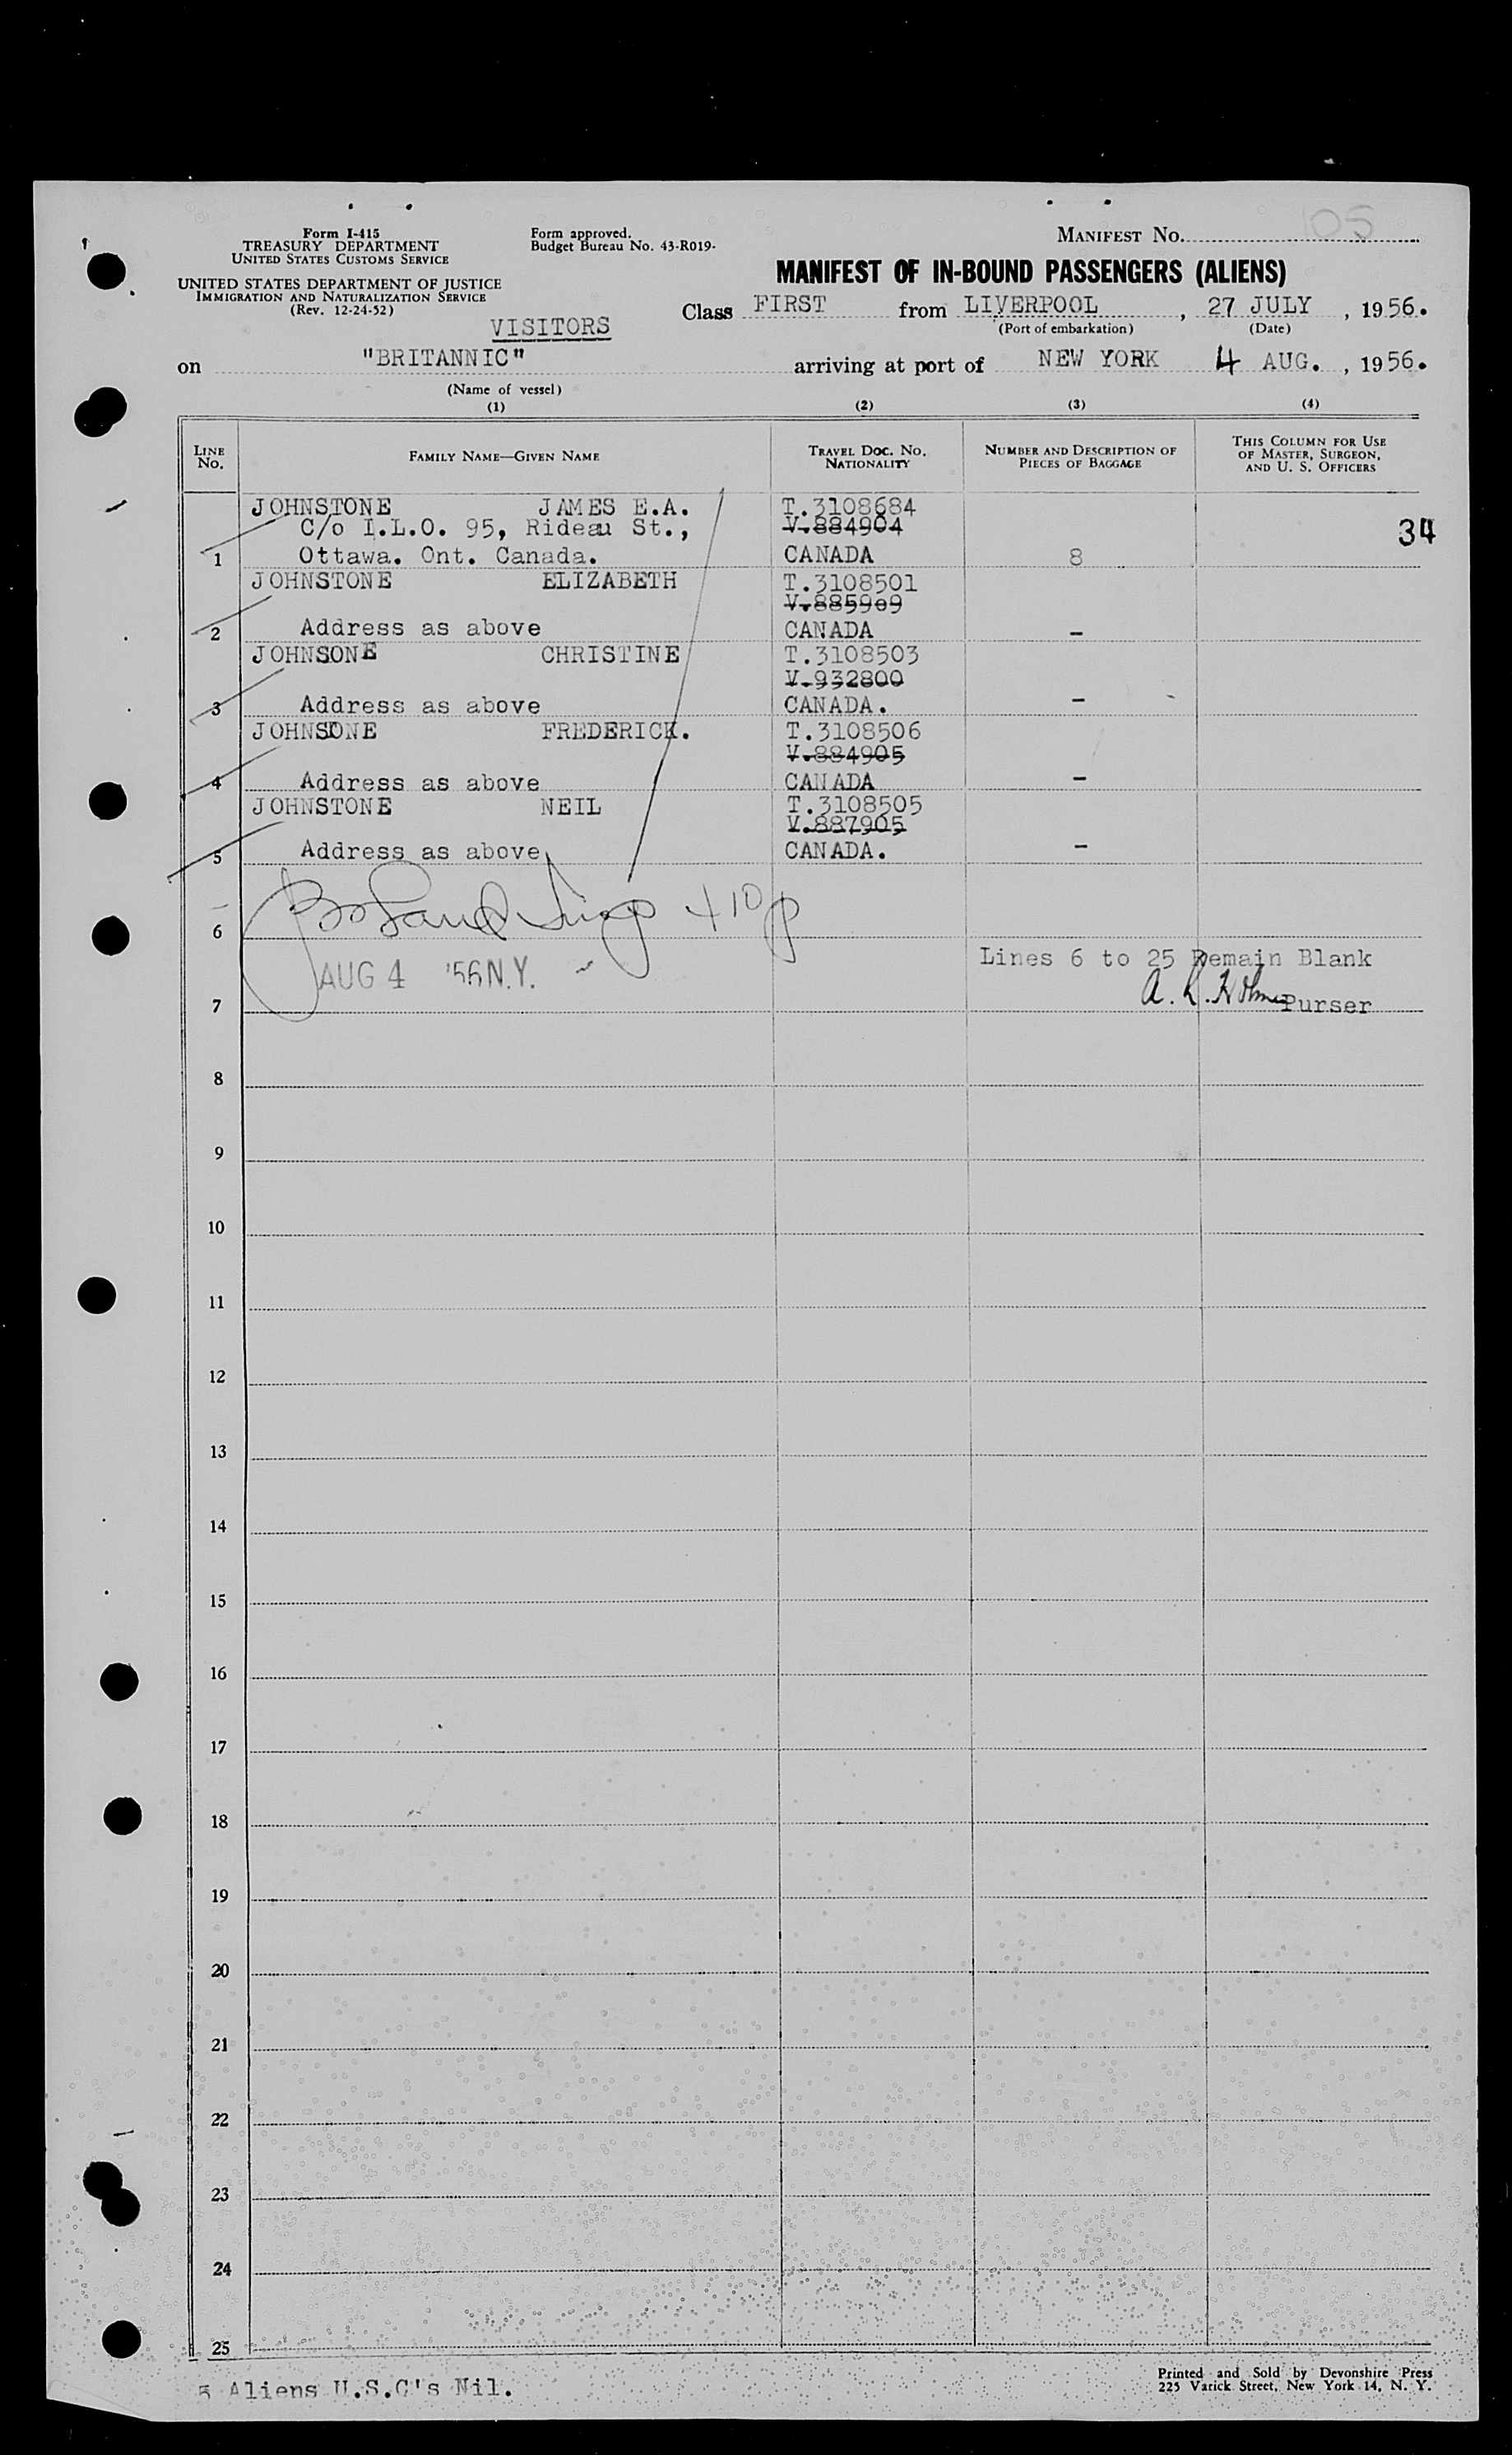 105
Form I-415
TREASURY DEPARTMENT
UNITED STATES CUSTOMS SERVICE
Form approved.
Budget Bureau No. 43-R019-
MANIFEST NO.
UNITED STATES DEPARTMENT OF JUSTICE
IMMIGRATION AND NATURALIZATION SERVICE
(Rev. 12-24-52)
MANIFEST OF IN-BOUND PASSENGERS (ALIENS)
VISITORS
Class FIRST from LIVERPOOL, 27 JULY, 1956.
(Port of embarkation) (Date)
on "BRITANNIC" arriving at port of NEW YORK 4 AUG., 1956.
(Name of vessel)
(1) (2) (3) (4)
LINE NO.
FAMILY NAME—GIVEN NAME
TRAVEL DOC. NO.
NATIONALITY
NUMBER AND DESCRIPTION OF
PIECES OF BAGGAGE
THIS COLUMN FOR USE
OF MASTER, SURGEON,
AND U. S. OFFICERS
JOHNSTONE JAMES E.A. T.3108684
C/o I.L.O. 95, Rideau St., V.884904
34
1 Ottawa. Ont. Canada. CANADA 8
JOHNSTONE ELIZABETH T.3108501
V.885909
2 Address as above CANADA –
JOHNSONE CHRISTINE T.3108503
V.932800
3 Address as above CANADA. –
JOHNSONE FREDERICK. T.3108506
V.884905
4 Address as above CANADA –
JOHNSTONE NEIL T.3108505
V.887905
5 Address as above CANADA. –
6
Lines 6 to 25 Remain Blank
AUG 4 '56 N.Y.
7 Purser
8
9
10
11
12
13
14
15
16
17
18
19
20
21
22
23
24
25
5 Aliens U.S.C's Nil.
Printed and Sold by Devonshire Press
225 Varick Street, New York 14, N. Y.